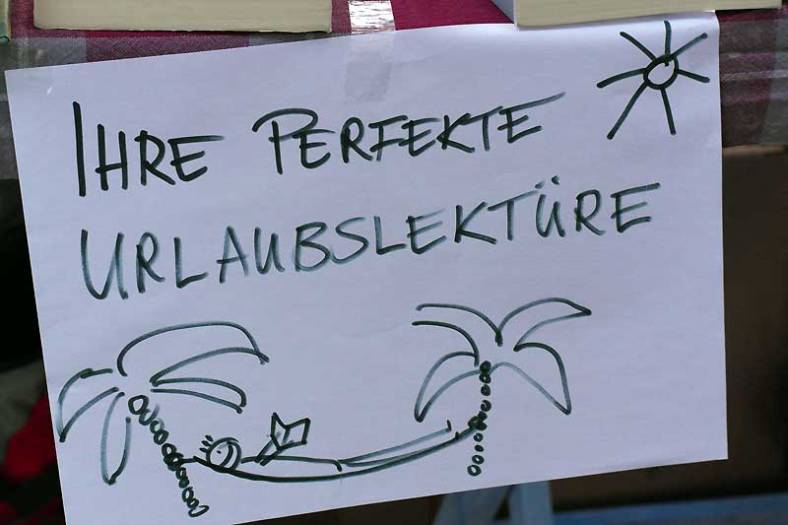 IHRE PERFEKTE
URLAUBSLEKTÜRE